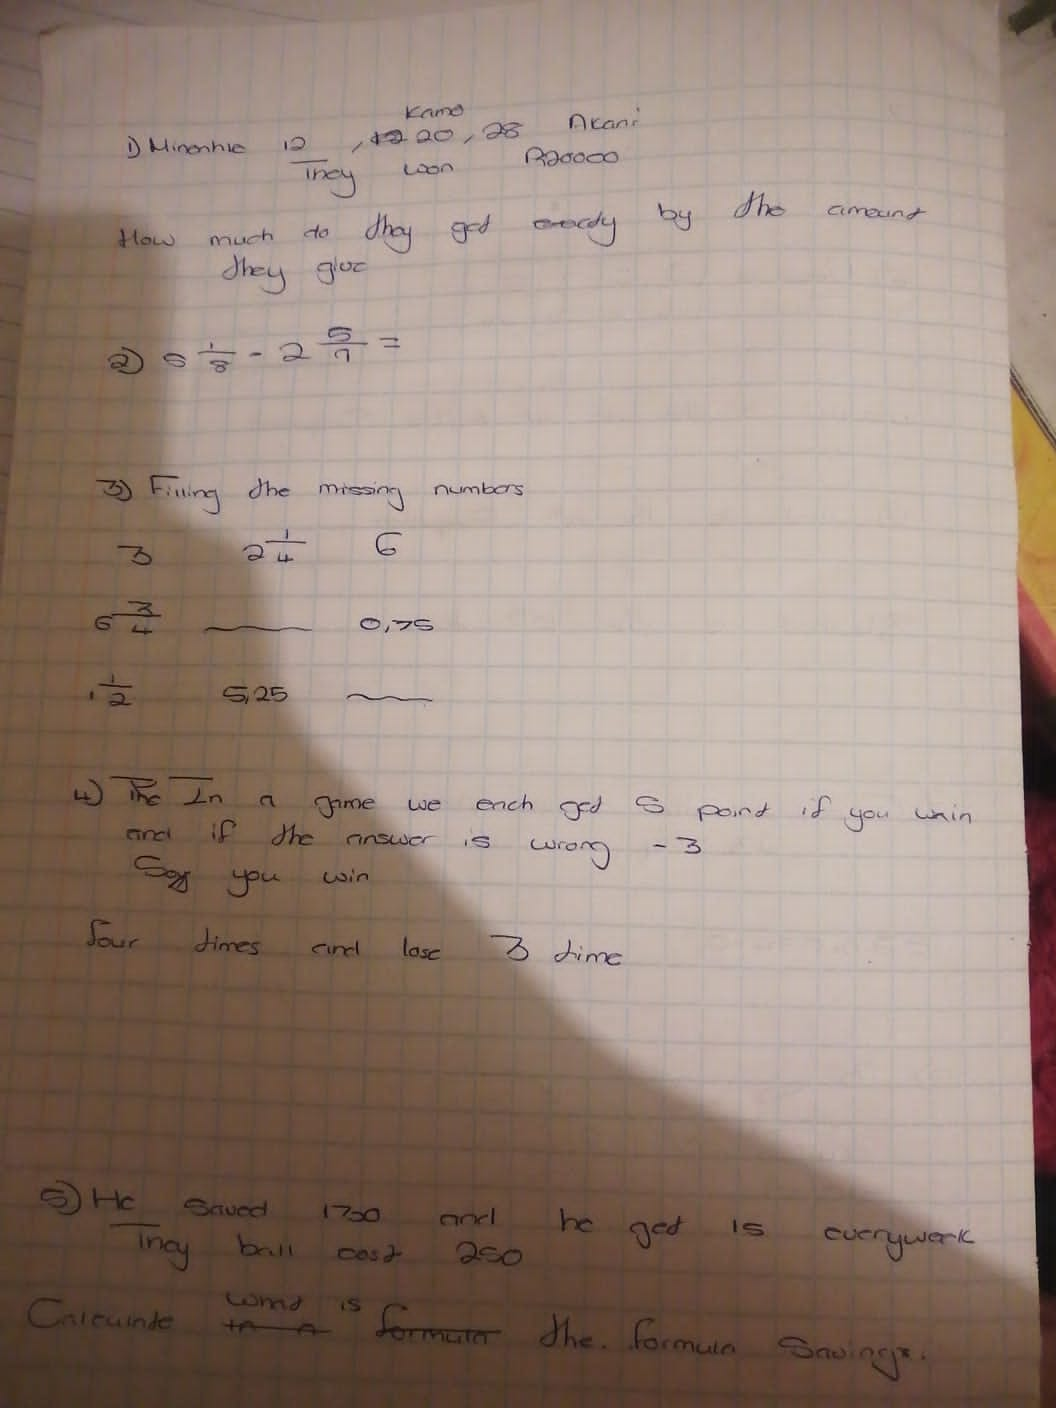 Kamo
1) Minenhle 12 , 20 , 28 Akani
They won R20000
How much do they get by the amount
they give
2) 5 1/8 - 2 5/7 =
3) Filling the missing numbers
3 2 1/4 6
6 3/4 ____ 0,75
1 1/2 5,25 ____
4) The In a game we each get 5 point if you win
and if the answer is wrong -3
Say you win
four times and lose 3 time
5) He saved and he get 15 everyweek
They ball cost 250
what is
Calculate formula the. formula Savings.